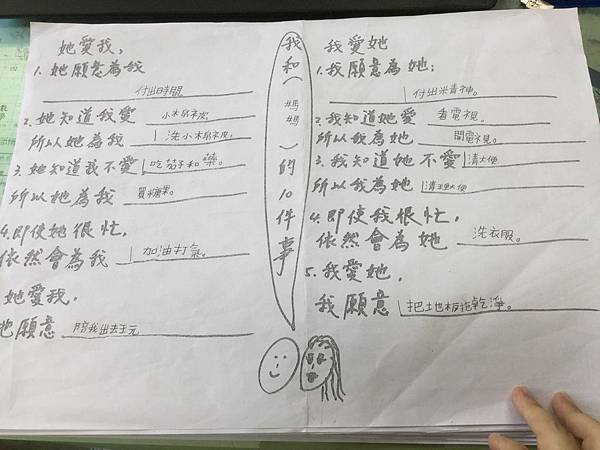 我和(媽媽)的10件事
她愛我,
1.她願意為我
付出時間
2.她知道我愛 小棉被。
所以她為我 洗小棉被。
3.她知道我不愛 吃茄子和藥。
所以她為我 買糖果。
4.即使她很忙,
依然會為我 加油打氣。
她愛我,
她願意 陪我出去玩
我愛她
1.我願意為她:
付出精神。
2.我知道她愛 看電視。
所以我為她 開電視。
3.我知道她不愛 清大便
所以我為她 清理大便
4.即使我很忙,
依然會為她 洗衣服。
5.我愛她,
我願意 把地板拖乾淨。